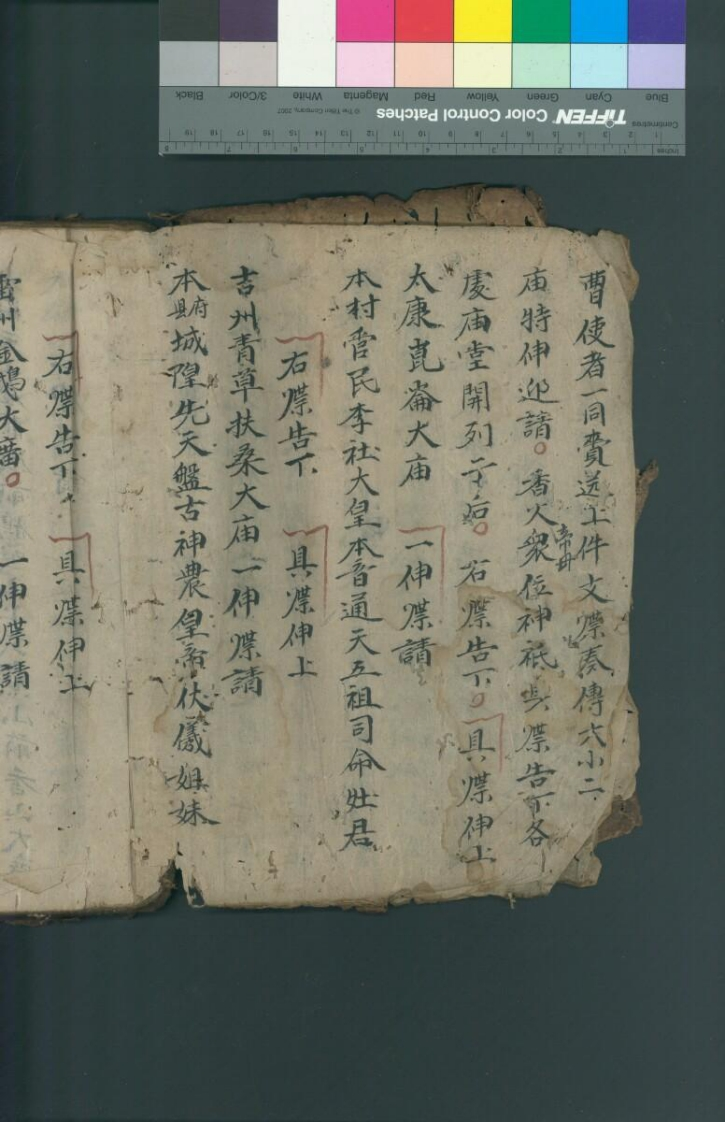 曹使者一同賫送上件文牒奏傳大小二
庙特伸迎請。香火衆位神祇帝母具牒告下各
處庙堂開列于后。右牒告下。具牒伸上
太康崑崙大庙 一伸牒請
本村官民李社大皇本音通天五祖司命灶君
右牒告下 具牒伸上
吉州青草扶桑大庙一伸牒請
本府縣城隍先天盤古神農皇帝伏儀姐妹
右牒告下 具牒伸上
雷州金鳩大庙。一伸牒請
Blue Cyan Green Yellow Red Magenta White 3/Color Black
TIFFEN Color Control Patches © The Tiffen Company, 2007
Centimetres 1 2 3 4 5 6 7 8 9 10 11 12 13 14 15 16 17 18 19
Inches 1 2 3 4 5 6 7 8